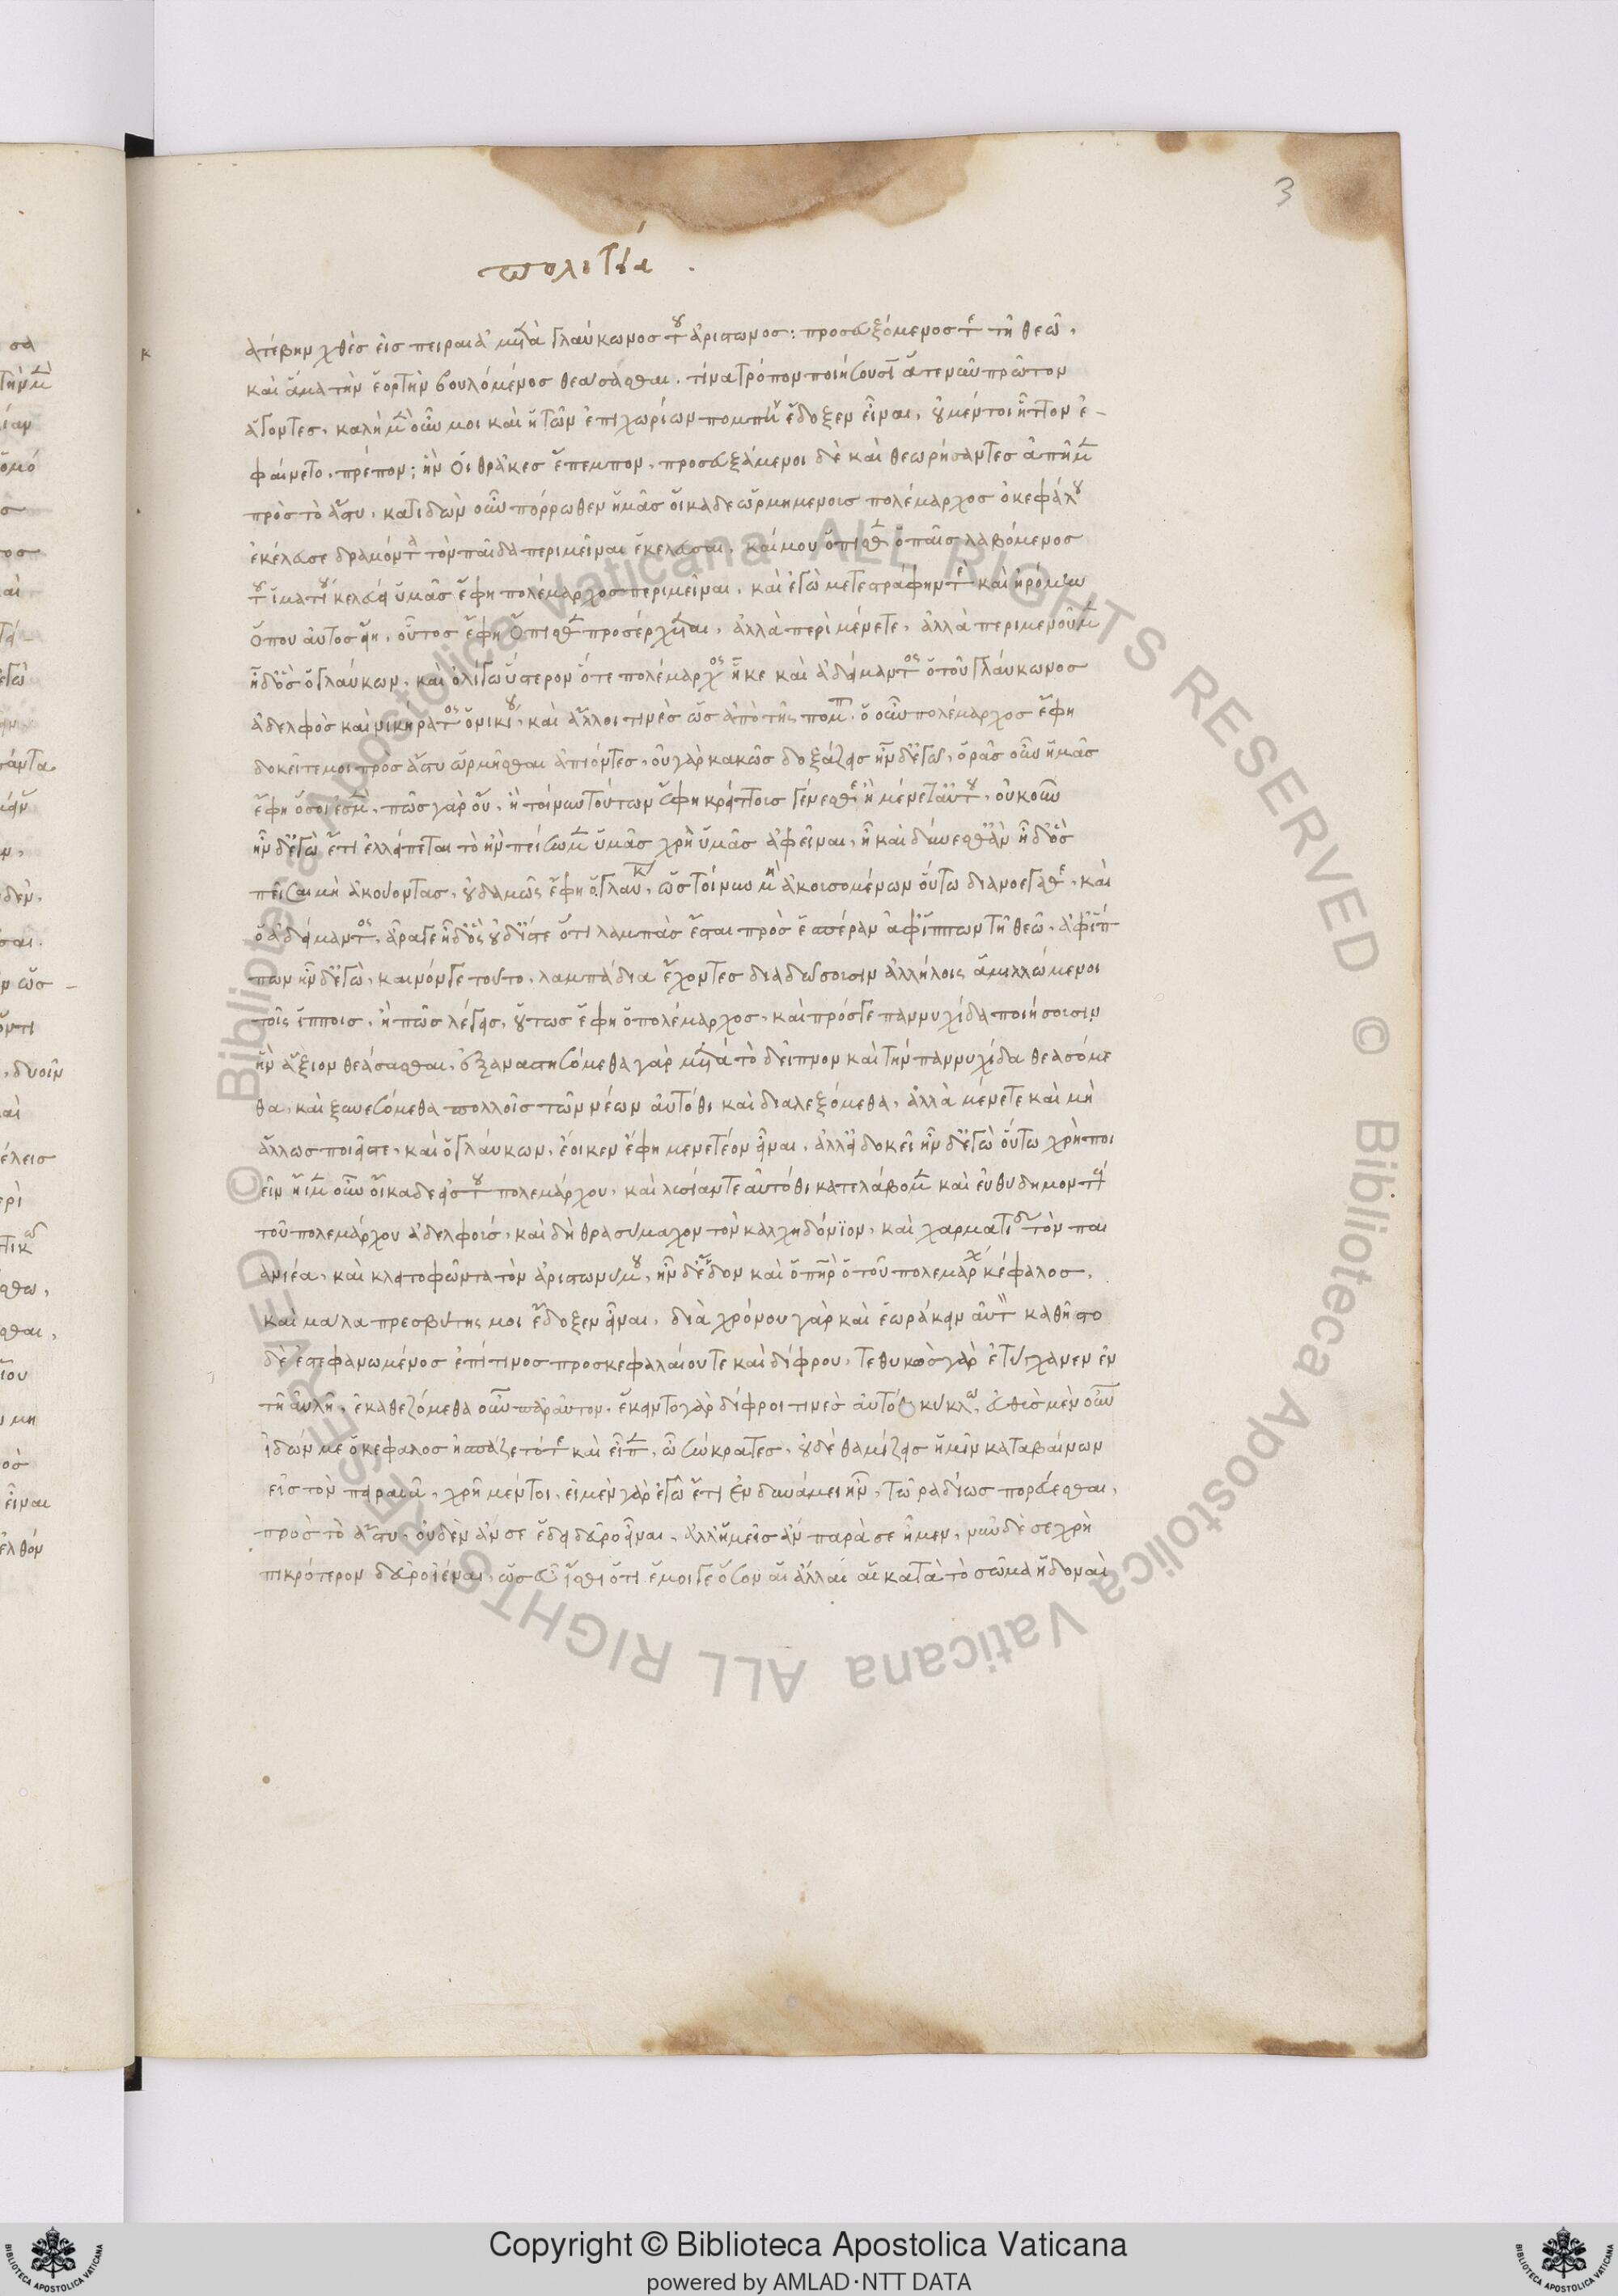 3
πολιτεία .
κ
ατέβην χθὲς εἰς πειραιᾶ μετὰ γλαύκωνος τοῦ ἀρίστωνος: προσευξόμενος τε τῆ θεῶ,
καὶ ἅμα τὴν ἑορτὴν βουλόμενος θεάσασθαι. τίνα τρόπον ποιήσουσιν ἅτε νῦν πρῶτον
ἄγοντες. καλὴ μὲν οὖν μοι καὶ ἡ τῶν ἐπιχωρίων πομπὴ ἔδοξεν εἶναι, οὐ μέντοι ἧττον ἐ-
φαίνετο, πρέπον; ἣν οἱ θράκες ἔπεμπον. προσευξάμενοι δὲ καὶ θεωρήσαντες ἀπῆμεν
πρὸς τὸ ἄστυ. κατιδὼν οὖν πόρρωθεν ἡμᾶς οἴκαδε ὡρμημένοις πολέμαρχος ὁ κεφάλου
ἐκέλευσε δραμόντα τὸν παῖδα περιμεῖναι ἑ κελεῦσαι, καί μου ὄπισθεν ὁ παῖς λαβόμενος
τοῦ ἱματίου κελεύει ὑμᾶς ἔφη πολέμαρχος περιμεῖναι. καὶ ἐγὼ μετεστράφην τὲ καὶ ἠρόμην
ὅπου αὐτὸς εἴη. οὗτος ἔφη ὄπισθεν προσέρχεται. ἀλλὰ περιμένετε, ἀλλὰ περιμενοῦμεν
ἦ δ' ὃς ὁ γλαύκων. καὶ ὀλίγω ὕστερον ὅτε πολέμαρχος ἧκε καὶ ἀδείμαντος ὁ τοῦ γλάυκωνος
ἀδελφὸς καὶ νικήρατος ὁ νικίου, καὶ ἄλλοι τινὲς ὡς ἀπὸ τῆς πομπ. ὁ οὖν πολέμαρχος ἔφη
δοκεῖτε μοι πρὸς ἄστυ ὡρμῆσθαι ἀπιόντες, οὐ γὰρ κακῶς δοξάζεις ἦν δ' ἐγώ, ὁρᾶς οὖν ἡμᾶς
ἔφη ὅσοι ἐσμέν, πῶς γὰρ οὔ, ἢ τοίνυν τούτων ἔφη κρείττοις γένεσθε ἢ μένετ' αὐτοῦ, οὐκοῦν
ἦν δ' ἐγὼ ἔτι ἐλλείπεται τὸ ἢν πείσωμεν ὑμᾶς χρὴ ὑμᾶς ἀφεῖναι, ἦ καὶ δύναισθ' ἂν ἦ δ' ὃς
πεῖσαι μὴ ἀκούοντας, οὐδαμῶς ἔφη ὁ γλαύκ, ὡς τοίνυν μὴ ἀκουσομένων οὕτω διανοεῖσθε, καὶ
ὁ ἀδείμαντος, ἆρά γε ἦ δ' ὃς οὐδ' ἴστε ὅτι λαμπὰς ἔσται πρὸς ἑσπέραν ἀφίππων τῆ θεῶ. ἀφίπ
πων ἦν δ' ἐγὼ, καινόν γε τοῦτο. λαμπάδια ἔχοντες διαδώσουσιν ἀλλήλοις ἁμιλλώμενοι
τοῖς ἵπποις, ἢ πῶς λέγεις, οὕτως ἔφη ὁ πολέμαρχος, καὶ πρός γε παννυχίδα ποιήσουσιν
ἣν ἄξιον θεάσασθαι, ἐξαναστησόμεθα γὰρ μετὰ τὸ δεῖπνον καὶ τὴν παννυχίδα θεασόμε
θα, καὶ ξυνεσόμεθα πολλοῖς τῶν νέων αὐτόθι καὶ διαλεξόμεθα, ἀλλὰ μένετε καὶ μὴ
ἄλλως ποιεῖτε, καὶ ὁ γλαύκων, ἔοικεν ἔφη μενετέον εἶναι, ἀλλ' εἰ δοκεῖ ἦν δ' ἐγὼ οὕτω χρὴ ποι
εῖν ἦιμεν οὖν οἴκαδε εἰς τοῦ πολεμάρχου, καὶ λυσίαν τε αὐτόθι κατελάβομεν καὶ εὐθύδημον τ
τοῦ πολεμάρχου ἀδελφούς, καὶ δὴ θρασύμαχον τὸν καλχηδόνιον, καὶ χαρματίδην τὸν παι
ανιέα, καὶ κλειτοφῶντα τὸν ἀριστωνύμου, ἦν δ' ἔνδον καὶ ὁ πατὴρ ὁ τοῦ πολεμάρχ κέφαλος,
καὶ μάλα πρεσβύτης μοι ἔδοξεν εἶναι, διὰ χρόνου γὰρ καὶ ἑωράκειν αὐτὸν καθῆστο
δὲ ἐστεφανωμένος ἐπί τινος προσκεφαλαίου τε καὶ δίφρου, τεθυκὼς γὰρ ἐτύγχανεν ἐν
τῆ αὐλῆ, ἐκαθεζόμεθα οὖν παρ' αὐτον, ἔκειντο γὰρ δίφροι τινὲς αὐτό κύκλω, εὐθὺς μὲν οὖν
ἰδών με ὁ κέφαλος ἠσπάζετό τε καὶ εἶπεν, ὦ σώκρατες, οὐδὲ θαμίζεις ἡμῖν καταβαίνων
εἰς τὸν πειραιᾶ, χρῆν μέντοι, εἰ μὲν γὰρ ἐγὼ ἔτι ἐν δυνάμει ἦν, τῶ ραδίως πορεύεσθαι,
πρὸς τὸ ἄστυ, οὐδὲν ἄν σε ἔδει δεῦρο ἰέναι, ἀλλ' ἡμεῖς ἂν παρὰ σε ἦμεν, νῦν δὲ σε χρὴ
πυκνότερον δεῦρο ἰέναι, ὡς εὖ ἴσθι ὅτι ἔμοιγε ὅσον αἱ ἄλλαι αἱ κατὰ τὸ σῶμα ἡδοναὶ
© Biblioteca Apostolica Vaticana ALL RIGHTS RESERVED
Copyright © Biblioteca Apostolica Vaticana
powered by AMLAD·NTT DATA